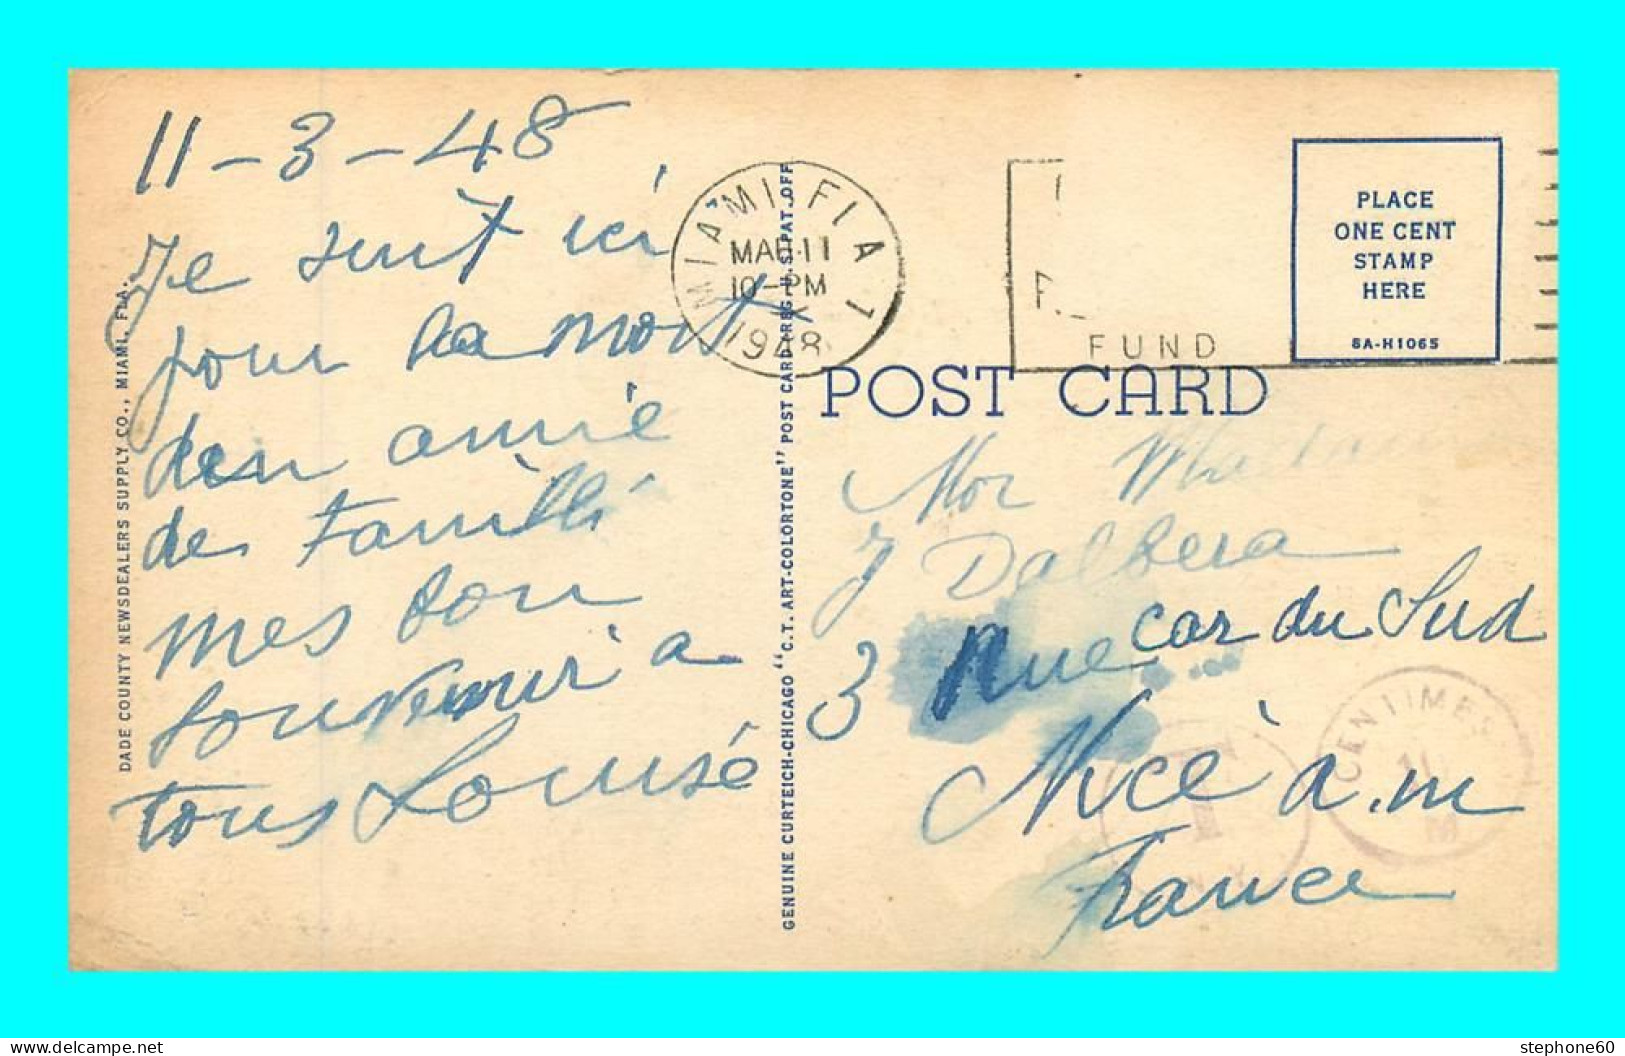 11-3-48
Je suit ici
pour la mort
d'en amie
de famille
mes bon
souvenir a
tous Louise
DADE COUNTY NEWSDEALERS SUPPLY CO., MIAMI, FLA.
GENUINE CURTEICH-CHICAGO "C.T. ART-COLORTONE" POST CARD (REG. U.S. PAT. OFF.
MIAMI FLA 1
MAR 11
10-PM
1948
FUND
PLACE
ONE CENT
STAMP
HERE
8A-H1065
POST CARD
Mor Madam
J Dalbera
3 Rue car du Sud
Nice a.m
France
CENTIMES
N.Y.
stephone60